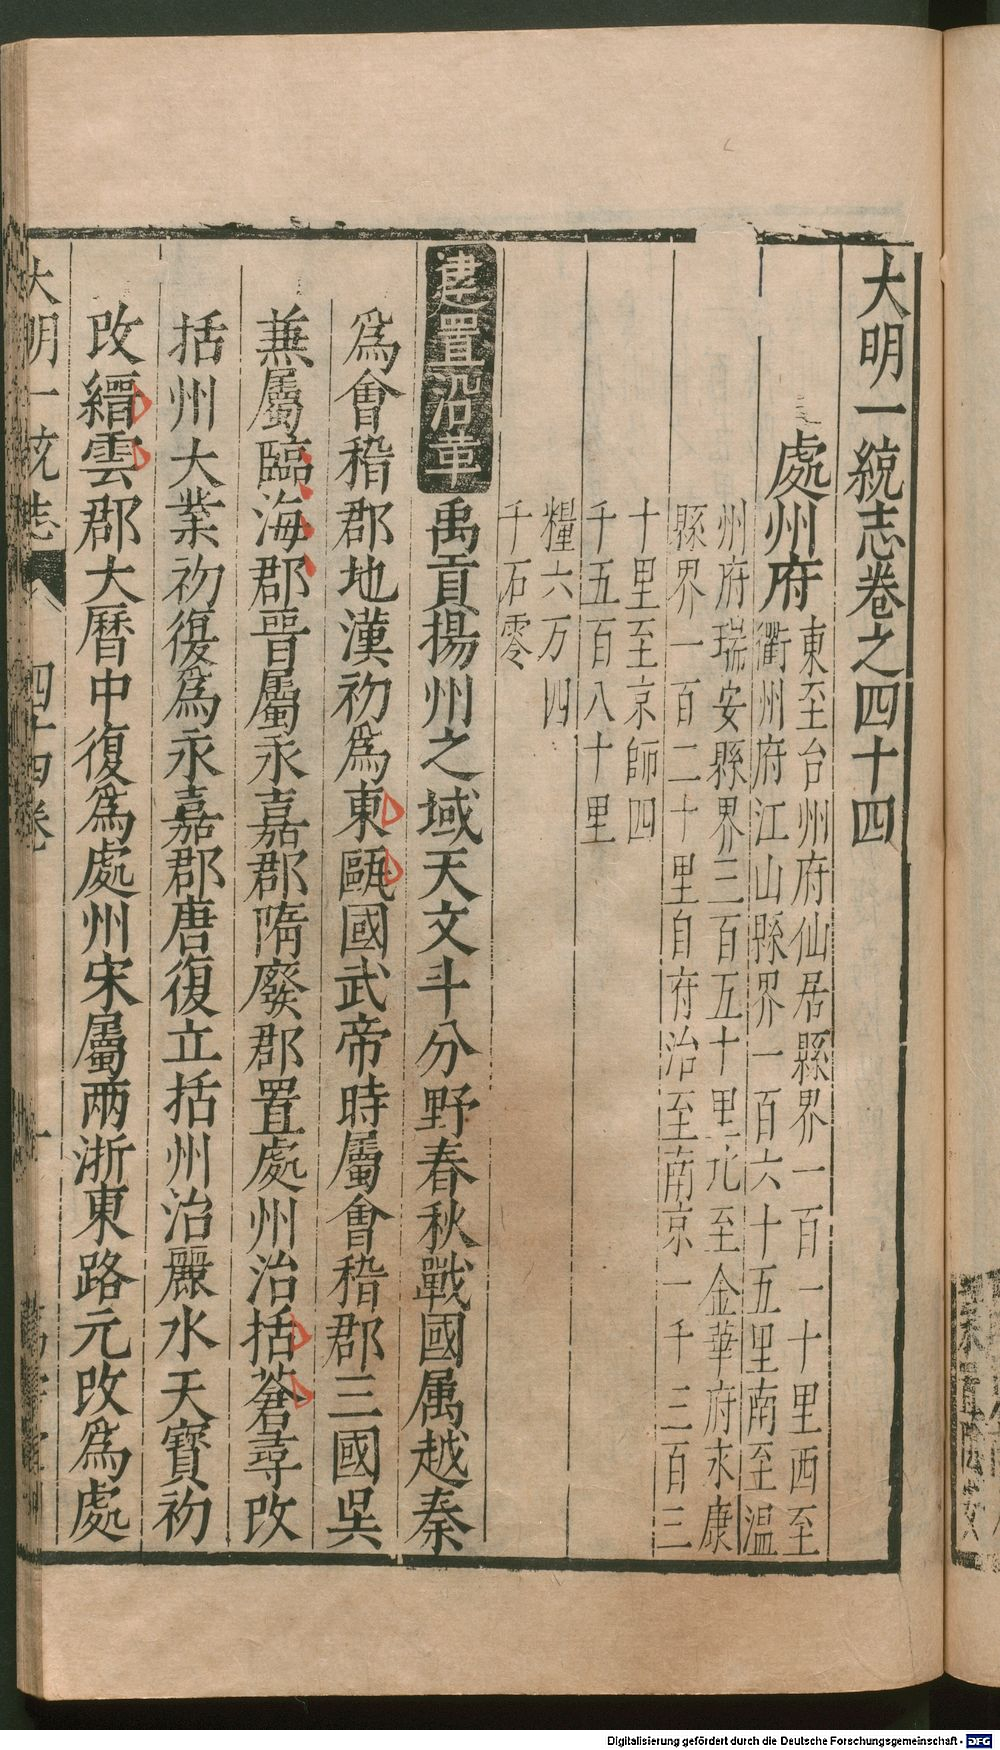 大明一統志卷之四十四
處州府
東至台州府仙居縣界一百一十里西至
衢州府江山縣界一百六十五里南至溫
州府瑞安縣界三百五十里北至金華府永康
縣界一百二十里自府治至南京一千三百三
十里至京師四
千五百八十里
糧六万四
千石零
建置沿革
禹貢揚州之域天文斗分野春秋戰國属越秦
爲會稽郡地漢初爲東甌國武帝時屬會稽郡三國吳
兼屬臨海郡晉屬永嘉郡隋廢郡置處州治括蒼尋改
括州大業初復爲永嘉郡唐復立括州治麗水天寶初
改縉雲郡大曆中復爲處州宋屬兩浙東路元改爲處
大明一统志
四十四卷
一
Digitalisierung gefördert durch die Deutsche Forschungsgemeinschaft - DFG